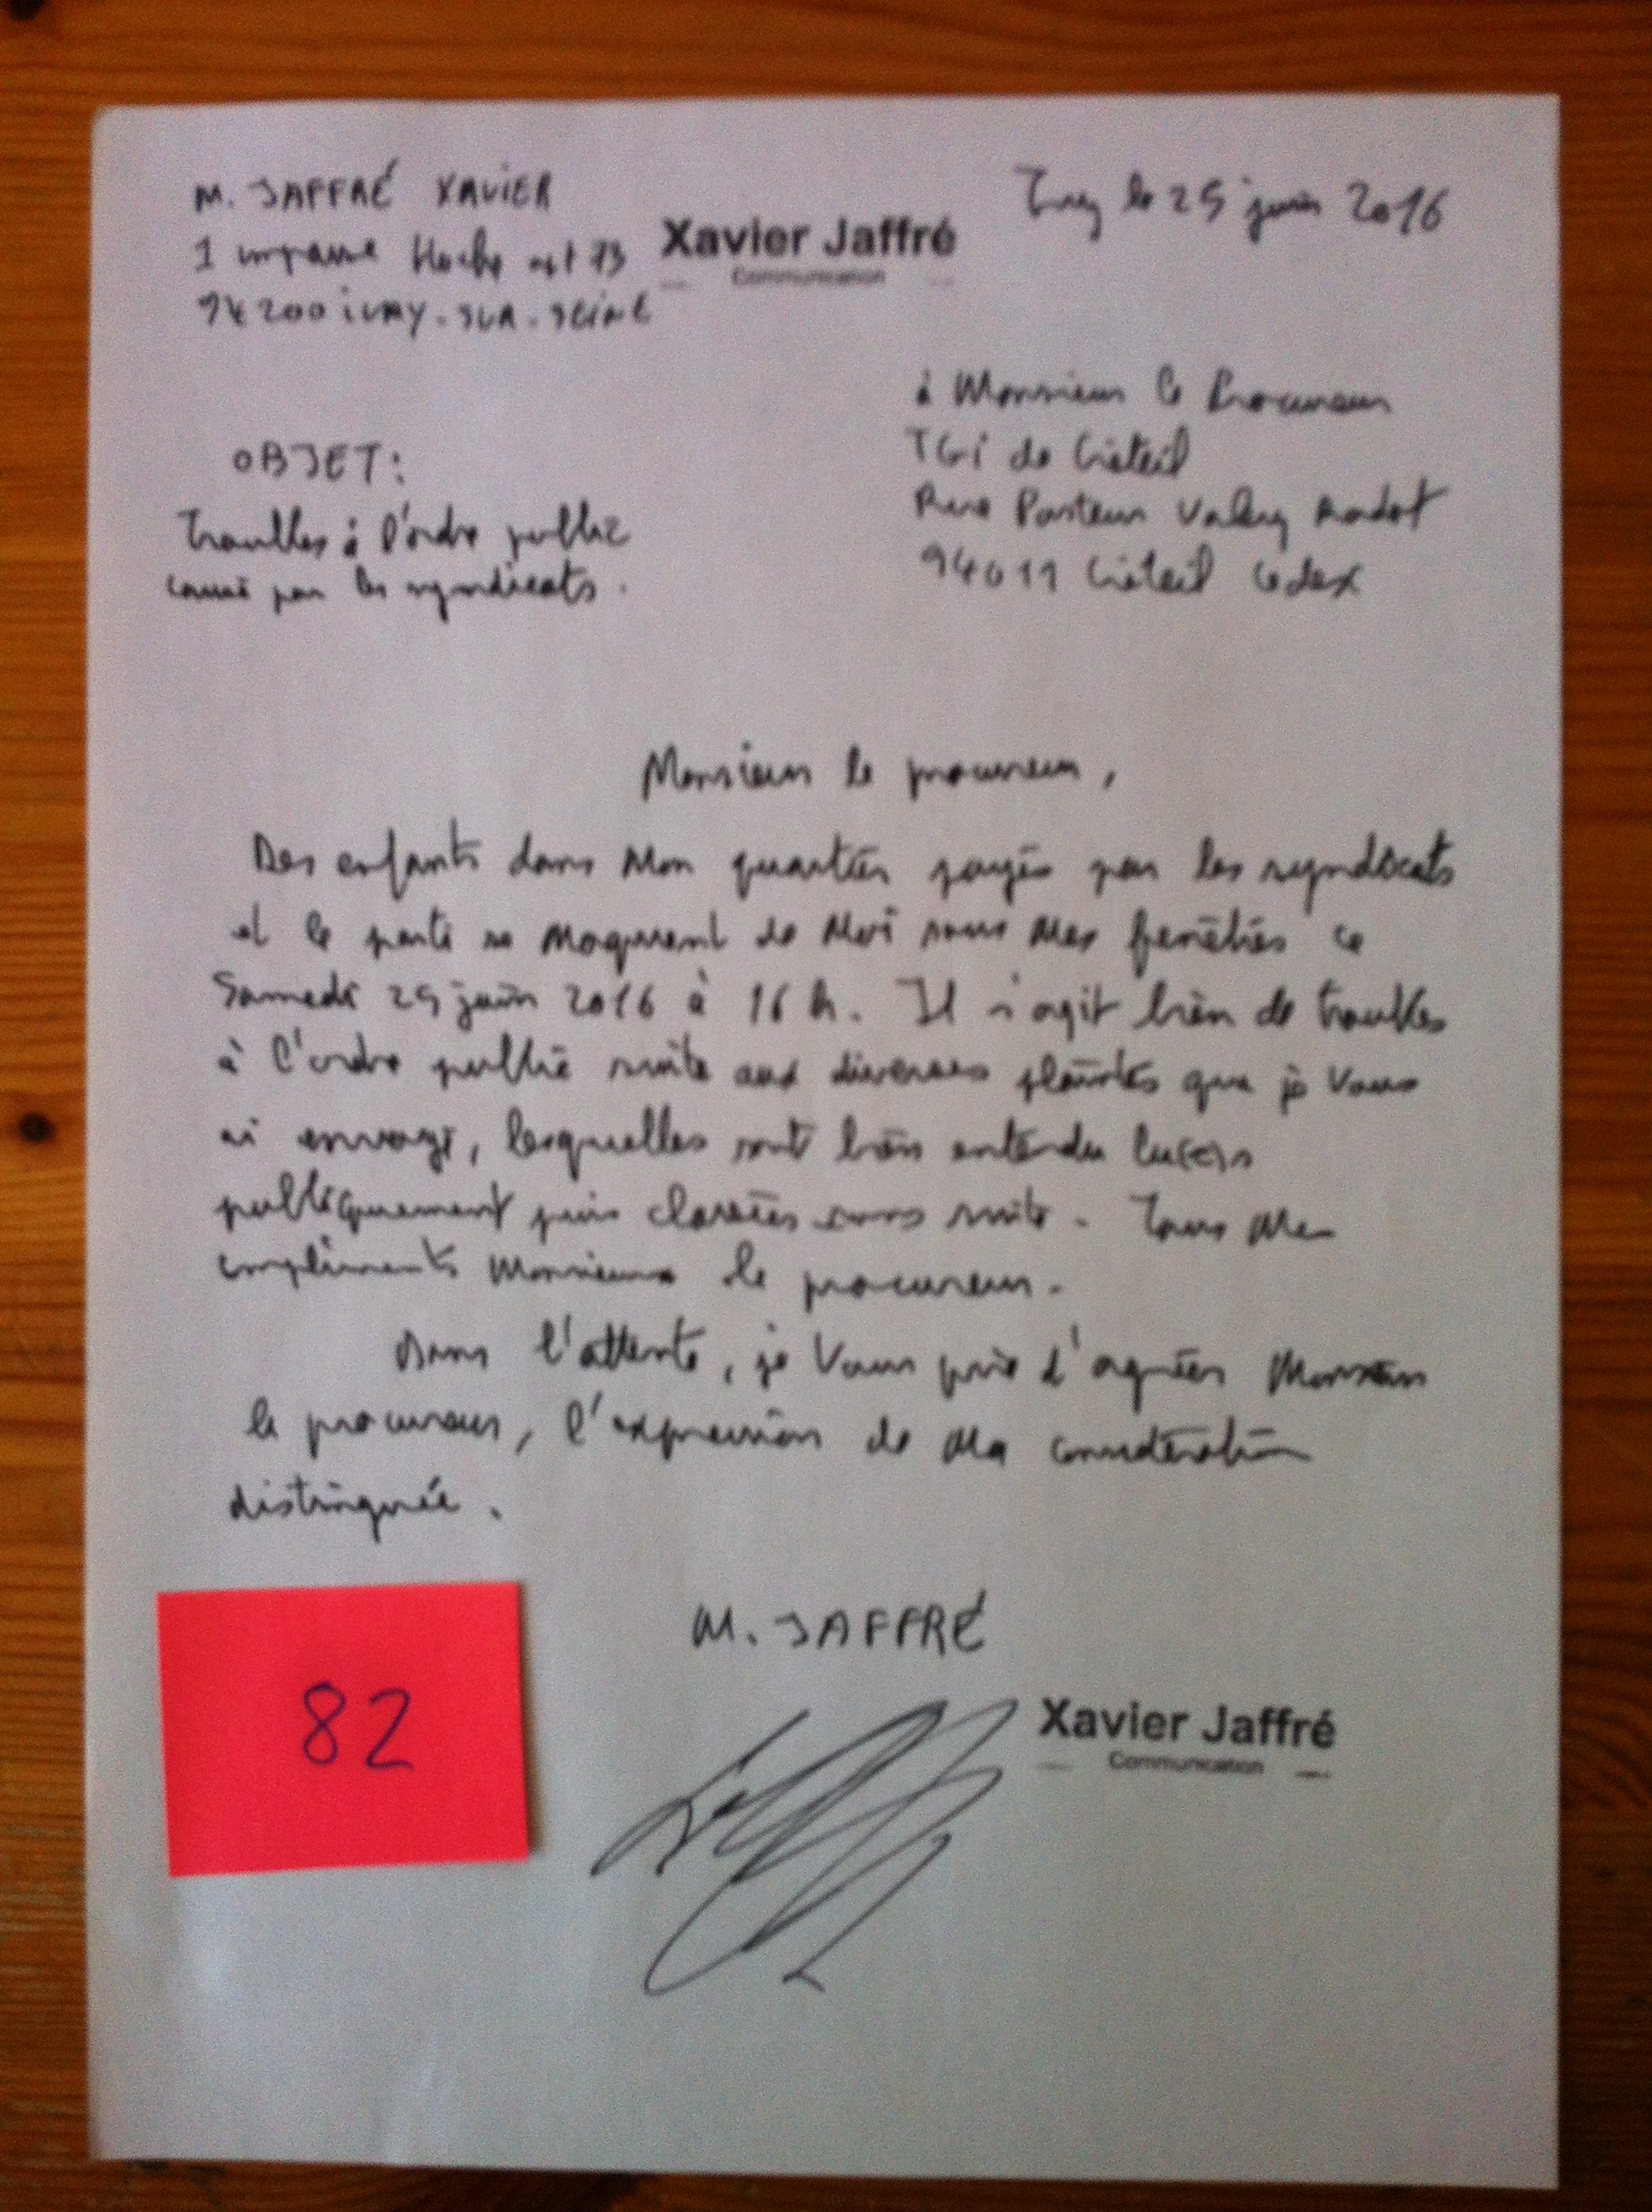 M. JAFFRÉ XAVIER
1 impasse Hoche apt 73
94200 iVRY-SUR-SEINE
Xavier Jaffré
Communication
Ivry le 25 juin 2016
à Monsieur le Procureur
TGI de Créteil
Rue Pasteur Valery Radot
94011 Créteil Cedex
OBJET:
Troubles à l'ordre public
causé par les syndicats.
Monsieur le procureur,
Des enfants dans mon quartier payés par les syndicats
et le parti se moquent de moi sous mes fenêtres ce
Samedi 25 juin 2016 à 16 h. Il s'agit bien de troubles
à l'ordre public suite aux diverses plaintes que je vous
ai envoyé, lesquelles sont bien entendu
publiquement puis classées sans suite. Tous mes
compliments Monsieur le procureur.
Dans l'attente, je vous prie d'agréer Monsieur
le procureur, l'expression de ma considération
distinguée.
M. JAFFRÉ
Xavier Jaffré
Communication
82